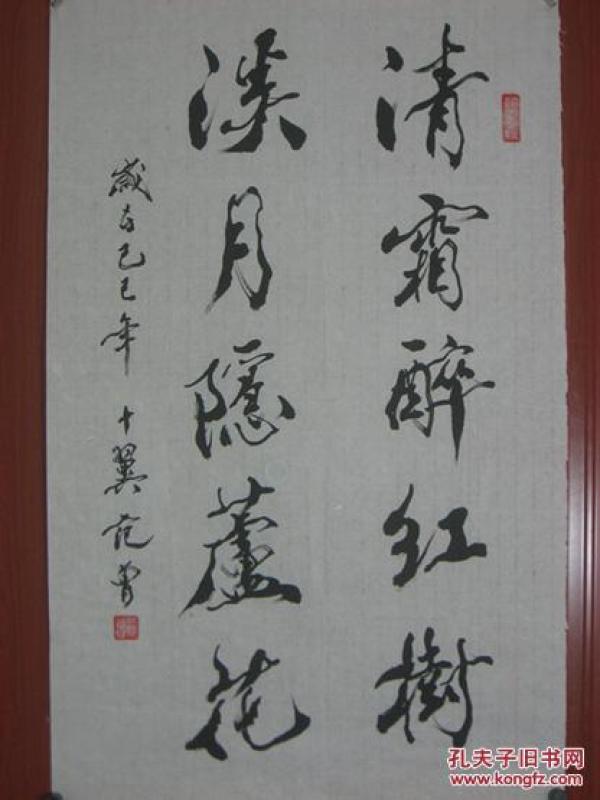 清霜醉红樹
淡月隱蘆花
歲在己巳年 十翼范曾
孔夫子旧书网
www.kongfz.com